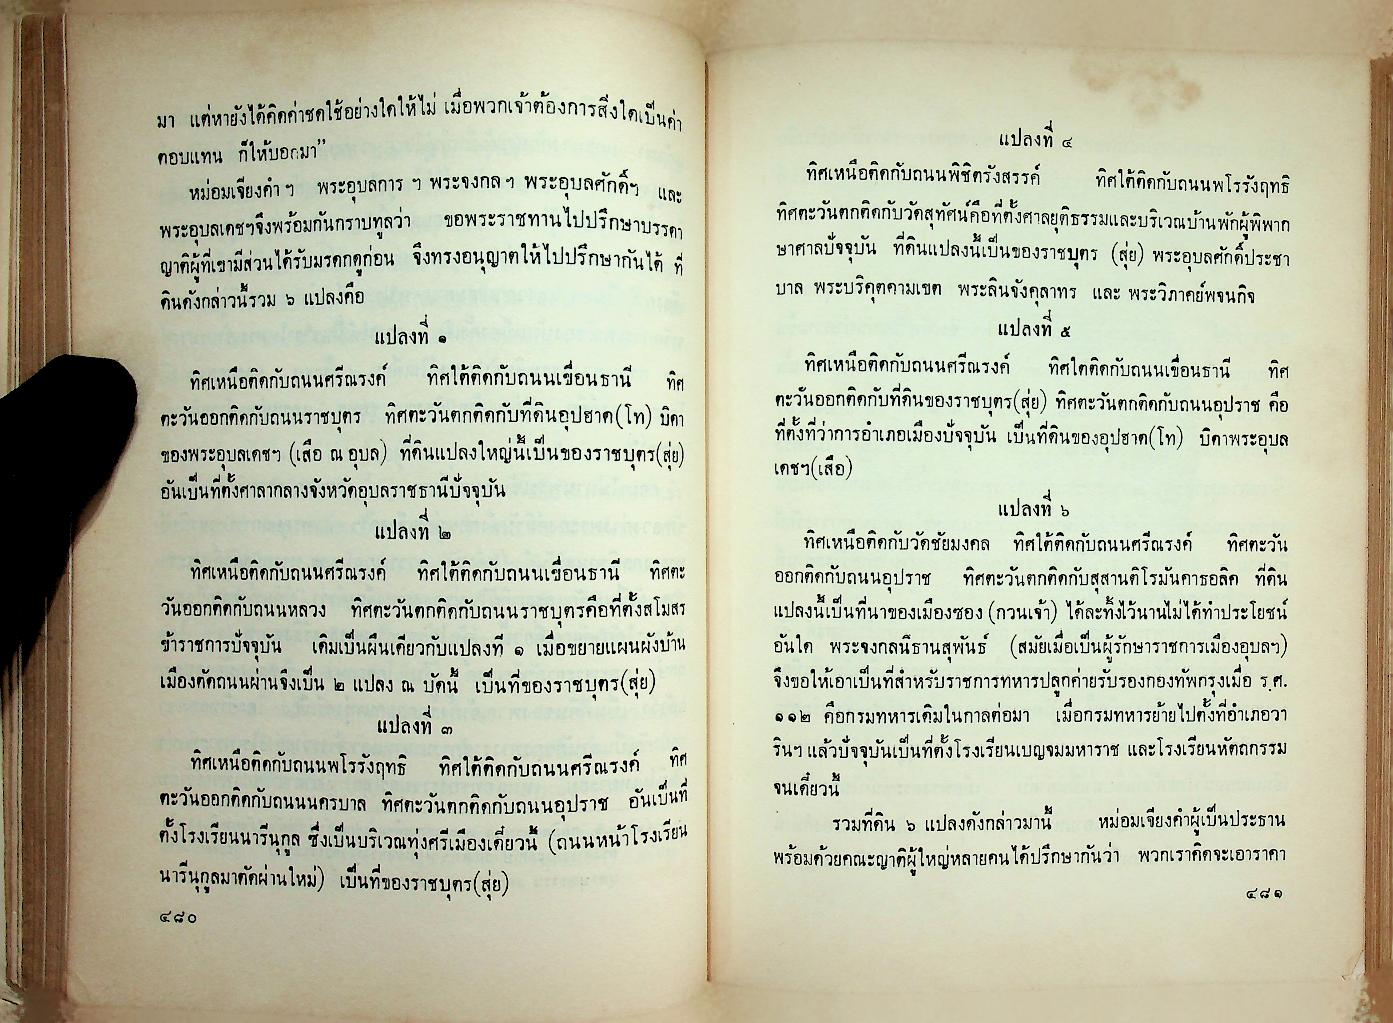 มา แต่หายังได้คิดค่าชดใช้อย่างใดให้ไม่ เมื่อพวกเจ้าต้องการสิ่งใดเป็นค่า
ตอบแทน ก็ให้บอกมา”
หม่อมเจียงคำฯ พระอุบลการ ฯ พระจงกลฯ พระอุบลศักดิ์ฯ และ
พระอุบลเดชฯจึงพร้อมกันกราบทูลว่า ขอพระราชทานไปปรึกษาบรรดา
ญาติผู้ที่เขามีส่วนได้รับมรดกดูก่อน จึงทรงอนุญาตให้ไปปรึกษากันได้ ที่
ดินดังกล่าวนี้รวม ๖ แปลงคือ
แปลงที่ ๑
ทิศเหนือติดกับถนนศรีณรงค์ ทิศใต้ติดกับถนนเขื่อนธานี ทิศ
ตะวันออกติดกับถนนราชบุตร ทิศตะวันตกติดกับที่ดินอุปฮาด(โท) บิดา
ของพระอุบลเดชฯ (เสือ ณ อุบล) ที่ดินแปลงใหญ่นี้เป็นของราชบุตร(สุ่ย)
อันเป็นที่ตั้งศาลากลางจังหวัดอุบลราชธานีปัจจุบัน
แปลงที่ ๒
ทิศเหนือติดกับถนนศรีณรงค์ ทิศใต้ติดกับถนนเขื่อนธานี ทิศตะ
วันออกติดกับถนนหลวง ทิศตะวันตกติดกับถนนราชบุตรคือที่ตั้งสโมสร
ข้าราชการปัจจุบัน เดิมเป็นผืนเดียวกับแปลงที่ ๑ เมื่อขยายแผนผังบ้าน
เมืองตัดถนนผ่านจึงเป็น ๒ แปลง ณ บัดนี้ เป็นที่ของราชบุตร(สุ่ย)
แปลงที่ ๓
ทิศเหนือติดกับถนนพโรรังฤทธิ ทิศใต้ติดกับถนนศรีณรงค์ ทิศ
ตะวันออกติดกับถนนนครบาล ทิศตะวันตกติดกับถนนอุปราช อันเป็นที่
ตั้งโรงเรียนนารีนุกูล ซึ่งเป็นบริเวณทุ่งศรีเมืองเดี๋ยวนี้ (ถนนหน้าโรงเรียน
นารีนุกูลมาตัดผ่านใหม่) เป็นที่ของราชบุตร(สุ่ย)
๔๘๐
แปลงที่ ๔
ทิศเหนือติดกับถนนพิชิตรังสรรค์ ทิศใต้ติดกับถนนพโรรังฤทธิ
ทิศตะวันตกติดกับวัดสุทัศน์คือที่ตั้งศาลยุติธรรมและบริเวณบ้านพักผู้พิพาก
ษาศาลปัจจุบัน ที่ดินแปลงนี้เป็นของราชบุตร (สุ่ย) พระอุบลศักดิ์ประชา
บาล พระบริคุตคามเขต พระสินจังคุลาทร และ พระวิภาคย์พจนกิจ
แปลงที่ ๕
ทิศเหนือติดกับถนนศรีณรงค์ ทิศใต้ติดกับถนนเขื่อนธานี ทิศ
ตะวันออกติดกับที่ดินของราชบุตร(สุ่ย) ทิศตะวันตกติดกับถนนอุปราช คือ
ที่ตั้งที่ว่าการอำเภอเมืองปัจจุบัน เป็นที่ดินของอุปฮาด(โท) บิดาพระอุบล
เดชฯ(เสือ)
แปลงที่ ๖
ทิศเหนือติดกับวัดชัยมงคล ทิศใต้ติดกับถนนศรีณรงค์ ทิศตะวัน
ออกติดกับถนนอุปราช ทิศตะวันตกติดกับสุสานติโรมันคาธอลิค ที่ดิน
แปลงนี้เป็นที่นาของเมืองซอง (กวนเจ้า) ได้ละทิ้งไว้นานไม่ได้ทำประโยชน์
อันใด พระจงกลนิธานสุพันธ์ (สมัยเมื่อเป็นผู้รักษาราชการเมืองอุบลฯ)
จึงขอให้เอาเป็นที่สำหรับราชการทหารปลูกค่ายรับรองกองทัพกรุงเมื่อ ร.ศ.
๑๑๒ คือกรมทหารเดิมในกาลต่อมา เมื่อกรมทหารย้ายไปตั้งที่อำเภอวา
รินฯ แล้วปัจจุบันเป็นที่ตั้งโรงเรียนเบญจมมหาราช และโรงเรียนหัตถกรรม
จนเดี๋ยวนี้
รวมที่ดิน ๖ แปลงดังกล่าวมานี้ หม่อมเจียงคำผู้เป็นประธาน
พร้อมด้วยคณะญาติผู้ใหญ่หลายคนได้ปรึกษากันว่า พวกเราคิดจะเอาราคา
๔๘๑